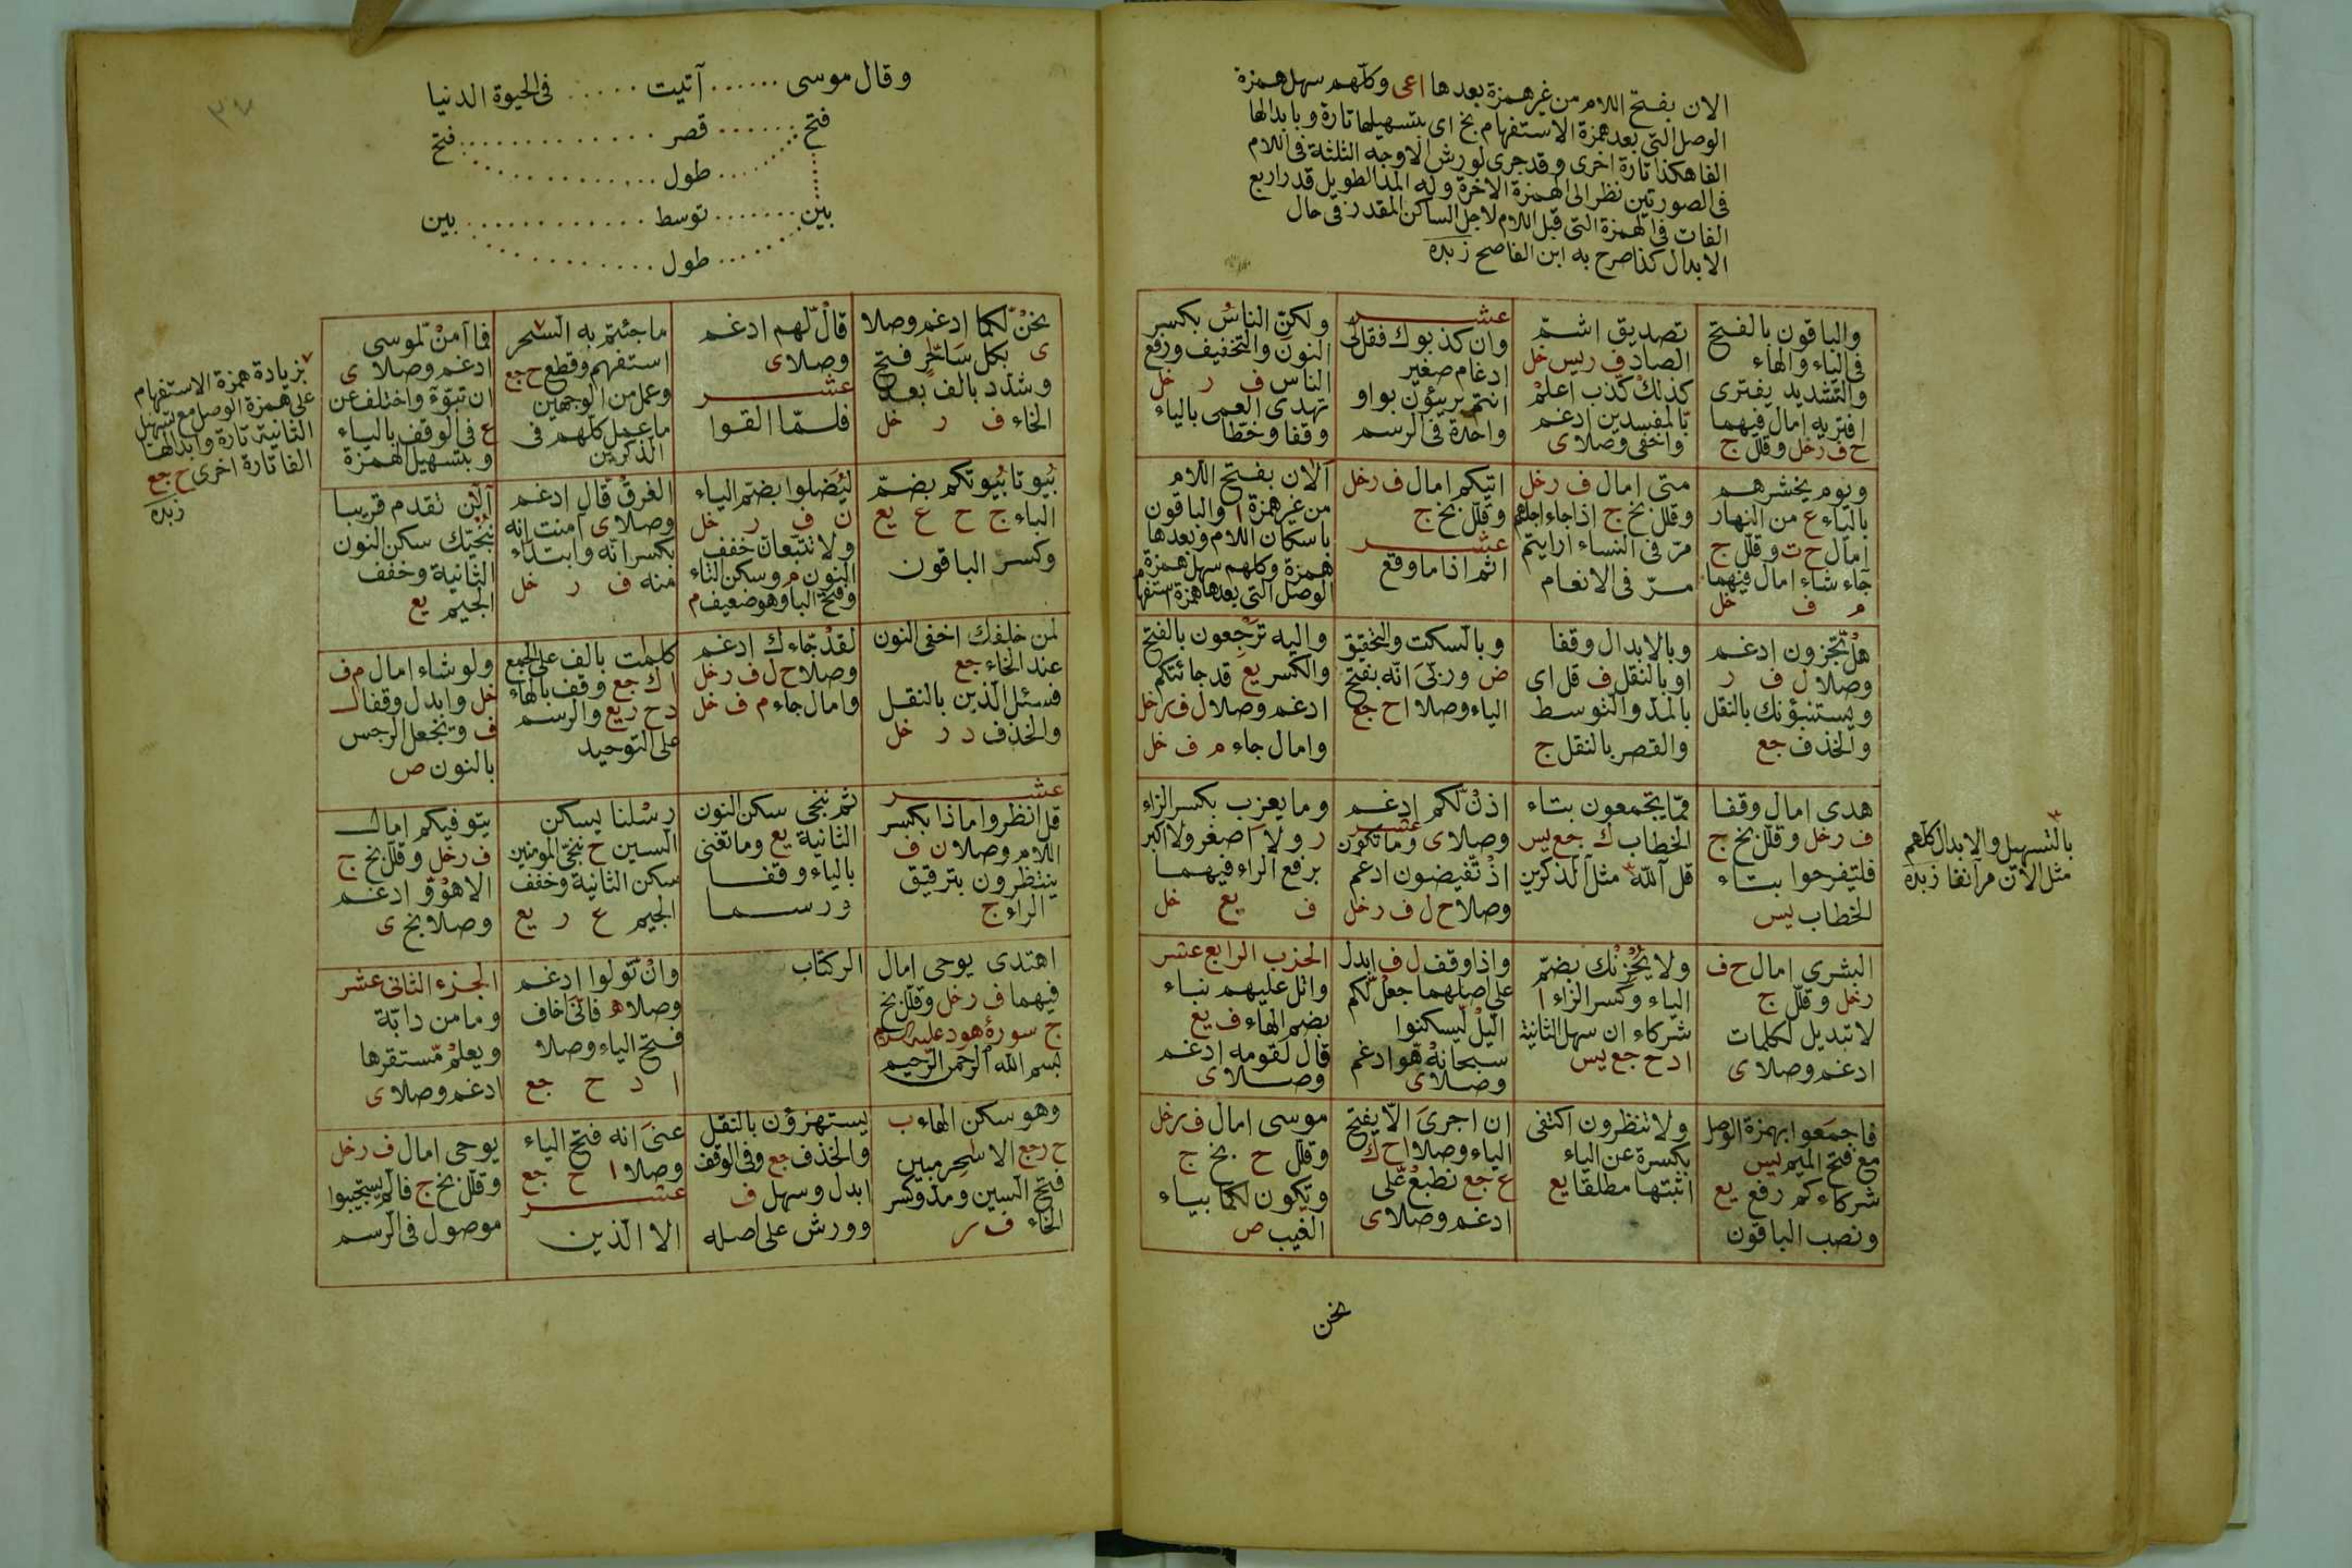 الان بفتح اللام من غير همزة بعدها اعى وكلهم سهل همزة
الوصل التى بعد همزة الاستفهام بخ اى بتسهيلها تارة وبابدالها
الفا هكذا تارة اخرى وقد جرى لورش الاوجه الثلثة فى اللام
فى الصورتين نظر الى الهمزة الاخرة وله المد الطويل قدر اربع
الفات فى الهمزة التى قبل اللام لاجل الساكن المقدر فى حال
الابدال كذا صرح به ابن القاصح زبده
والباقون بالفتح
فى الياء والهاء
والتشديد يفترى
افتريه امال فيهما
ح ف رخل وقلل ج
تصديق اشمّ
الصاد ف ريس خل
كذلك كذّب اعلم
بالمفسدين ادغم
واخفى وصلا ى
عشر
وان كذبوك فقل لى
ادغام صغير
انتم بريؤن بواو
واحدة فى الرسم
ولكن الناس بكسر
النون والتخفيف ورفع
الناس ف ر خل
تهدى العمى بالياء
وقفا وخطا
ويوم يحشرهم
بالياء ع من النهار
امال ح ت وقلل ج
جاء شاء امال فيهما
م ف خل
متى امال ف رخل
وقلل بخ ج اذا جاء اجلهم
مرّ فى النساء ارايتم
مرّ فى الانعام
اتيكم امال ف رخل
وقلل بخ ج
عشر
اثم اذا ما وقع
آلان بفتح اللام
من غير همزة ا والباقون
باسكان اللام وبعدها
همزة وكلهم سهل همزة
الوصل التى بعدها همزة استفهام
هل تجزون ادغم
وصلا ل ف ر
ويستنبؤنك بالنقل
والحذف جع
وبالابدال وقفا
او بالنقل ف قل اى
بالمد والتوسط
والقصر بالنقل ج
وبالسكت والتحقيق
ض وربى انه بفتح
الياء وصلا ا ح جع
واليه ترجعون بالفتح
والكسر يع قد جائتكم
ادغم وصلا ل ف رخل
وامال جاء م ف خل
هدى امال وقفا
ف رخل وقلل بخ ج
فلتفرحوا بتاء
الخطاب يس
ممّا يجمعون بتاء
الخطاب ك جع يس
قل آلله مثل آلذكرين
اذن لكم ادغم
عشر
وصلا ى وما تكون
اذ تفيضون ادغم
وصلا ح ل ف رخل
وما يعزب بكسر الزاء
ر ولا اصغر ولا اكبر
برفع الراء فيهما
ف يع خل
البشرى امال ح ف
رخل وقلل ج
لا تبديل لكلمات
ادغم وصلا ى
ولا يحزنك بضم
الياء وكسر الزاء ا
شركاء ان سهل الثانية
ا د ح جع يس
واذا وقف ل ف ابدل
على اصلهما جعل لكم
اليل ليسكنوا
سبحانه هو ادغم
وصلا ى
الحزب الرابع عشر
واتل عليهم نباء
بضم الهاء ف يع
قال لقومه ادغم
وصلا ى
فاجمعوا بهمزة الوصل
مع فتح الميم يس
شركاءكم رفع يع
ونصب الباقون
ولا تنظرون اكتفى
بكسرة عن الياء
اثبتها مطلقا يع
ان اجرى الا بفتح
الياء وصلا ا ح ك
ع جع نطبع على
ادغم وصلا ى
موسى امال ف رخل
وقلل ح بخ ج
وتكون لكما بياء
الغيب ص
بالتسهيل والابدال كلهم
مثل الان مر آنفا زبده
نحن
وقال موسى ...... آتيت ...... فى الحيوة الدنيا
فتح ...... قصر ............ فتح
طول
بين ...... توسط ............ بين
طول
نحن لكما ادغم وصلا
ى بكل ساحر فتح
وشدد بالف بعد
الحاء ف ر خل
قال لهم ادغم
وصلا ى
عشر
فلمّا القوا
ما جئتم به السحر
استفهم وقطع ح جع
وعمل من الوجهين
ما عمل كلهم فى
الذكرين
فما آمن لموسى
ادغم وصلا ى
ان تبوّءَ واختلف عن
ع فى الوقف بالياء
وبتسهيل الهمزة
بيوتا بيوتكم بضم
الباء ج ح ع يع
وكسر الباقون
ليُضلوا بضم الياء
ن ف ر خل
ولا تتبعان خفف
النون م وسكن التاء
وفتح البا وهو ضعيف م
الغرق قال ادغم
وصلا ى آمنت انه
بكسر انه وابتداء
منه ف ر خل
آلئن تقدم قريبا
ننجيك سكن النون
الثانية وخفف
الجيم يع
لمن خلفك اخفى النون
عند الخاء جع
فسئل الذين بالنقل
والحذف د ر خل
لقد جاءك ادغم
وصلا ح ل ف رخل
وامال جاء م ف خل
كلمت بالف على الجمع
ا ك جع وقف بالهاء
د ح ر يع والرسم
على التوحيد
ولو شاء امال م ف
خل وابدل وقفا ل
ف ونجعل الرجس
بالنون ص
عشر
قل انظروا ماذا بكسر
اللام وصلا ن ف
ينتظرون بترقيق
الراء ج
ثم ننجى سكن النون
الثانية يع وما تغنى
بالياء وقفا
ورسما
رسلنا يسكن
السين ح ننجى المؤمنين
سكن الثانية وخفف
الجيم ع ر يع
يتوفيكم امال
ف رخل وقلل بخ ج
الا هو و ادغم
وصلا بخ ى
اهتدى يوحى امال
فيهما ف رخل وقلل بخ
ج سورة هود عليه السلام
بسم الله الرحمن الرحيم
الر كتاب
وان تولوا ادغم
وصلا ه فانى اخاف
فتح الياء وصلا
ا د ح جع
الجزء الثانى عشر
وما من دابّة
ويعلم مستقرها
ادغم وصلا ى
وهو سكن الهاء ب
ح ر جع الا سحر مبين
فتح السين ومد وكسر
الحاء ف ر
يستهزؤن بالنقل
والحذف جع وفى الوقف
ابدل وسهل ف
وورش على اصله
عنى انه فتح الياء
وصلا ا ح جع
عشر
الا الذين
يوحى امال ف رخل
وقلل بخ ج فالم يستجيبوا
موصول فى الرسم
بزيادة همزة الاستفهام
على همزة الوصل مع تسهيل
الثانية تارة وابدالها
الفا تارة اخرى ح جع
زبده
٣٧